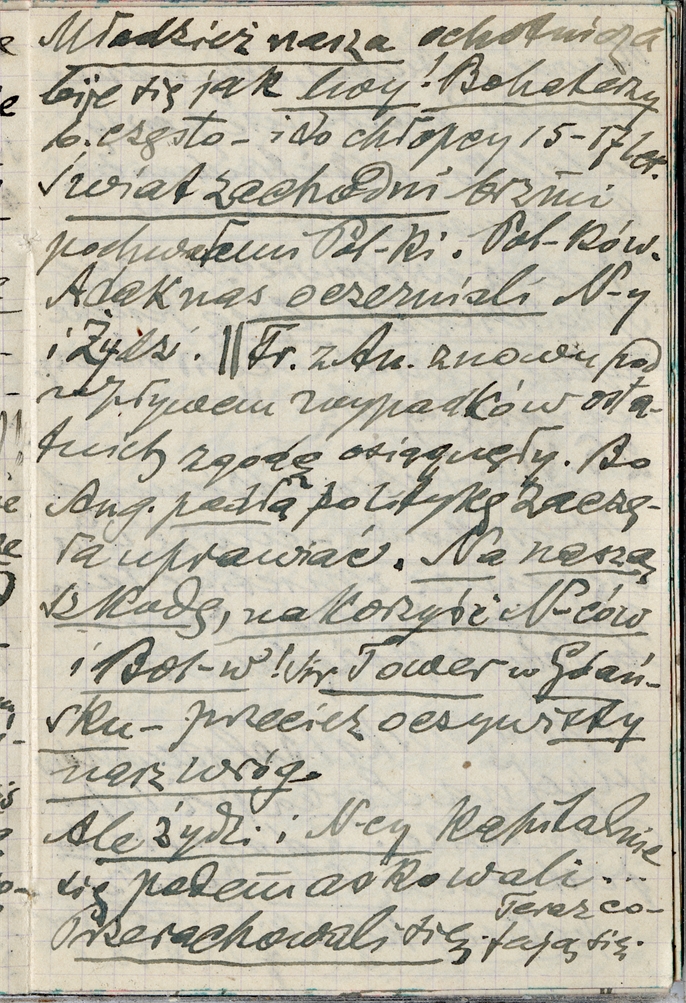 Młodzież nasza ochotnicza
bije się jak lwy! Bohaterzy
b. często – i to chłopcy 15–17 let.
Świat zachodni brzmi
pochwałami Pol-ki. Pol-ków.
A tak nas oczerniali N-y
i Żydzi. || Fr. z An. znowu pod
wpływem wypadków osta-
tnich zgodę osiągnęły. Bo
Ang. podłą politykę zaczę-
ła uprawiać. Na naszą
szkodę, na korzyść N-ców
i Bol-w! Sir Tower w Gdań-
sku – przecież oczywisty
nasz wróg.
Ale Żydzi i N-cy kapitalnie
się zdemaskowali...
Przerachowali się. Teraz co-
fają się.